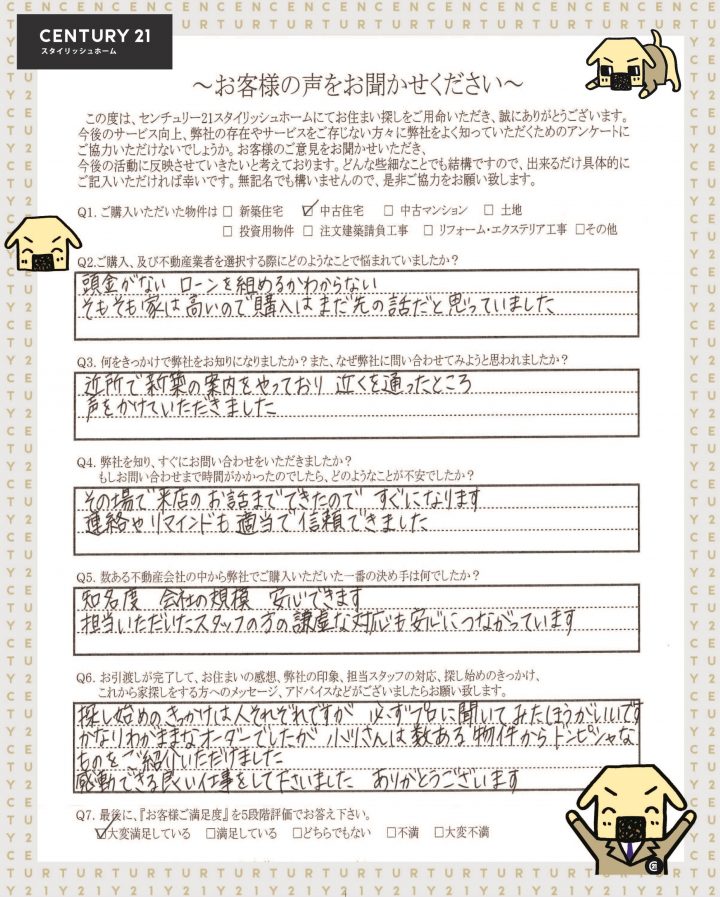 CENTURY 21
スタイリッシュホーム
～お客様の声をお聞かせください～
この度は、センチュリー21スタイリッシュホームにてお住まい探しをご用命いただき、誠にありがとうございます。
今後のサービス向上、弊社の存在やサービスをご存じない方々に弊社をよく知っていただくためのアンケートに
ご協力いただけないでしょうか。お客様のご意見をお聞かせいただき、
今後の活動に反映させていきたいと考えております。どんな些細なことでも結構ですので、出来るだけ具体的に
ご記入いただければ幸いです。無記名でも構いませんので、是非ご協力をお願い致します。
Q1. ご購入いただいた物件は □ 新築住宅 ☑ 中古住宅 □ 中古マンション □ 土地
□ 投資用物件 □ 注文建築請負工事 □ リフォーム・エクステリア工事 □その他
Q2.ご購入、及び不動産業者を選択する際にどのようなことで悩まれていましたか？
頭金がない ローンを組めるかわからない
そもそも家は高いので購入はまだ先の話だと思っていました
Q3. 何をきっかけで弊社をお知りになりましたか？また、なぜ弊社に問い合わせてみようと思われましたか？
近所で新築の案内をやっており 近くを通ったところ
声をかけていただきました
Q4. 弊社を知り、すぐにお問い合わせをいただきましたか？
もしお問い合わせまで時間がかかったのでしたら、どのようなことが不安でしたか？
その場で来店のお話までできたので すぐになります
連絡やリマインドも適当で信頼できました
Q5. 数ある不動産会社の中から弊社でご購入いただいた一番の決め手は何でしたか？
知名度 会社の規模 安心できます
担当いただいたスタッフの方の謙虚な対応も安心につながっています
Q6. お引渡しが完了して、お住まいの感想、弊社の印象、担当スタッフの対応、探し始めのきっかけ、
これから家探しをする方へのメッセージ、アドバイスなどがございましたらお願い致します。
探し始めのきっかけは人それぞれですが 必ずプロに聞いてみたほうがいいです
かなりわがままなオーダーでしたが 小川さんは数ある物件からドンピシャな
ものをご紹介いただけました
感動できる良い仕事をして下さいました ありがとうございます
Q7. 最後に、『お客様ご満足度』を5段階評価でお答え下さい。
☑大変満足している □満足している □どちらでもない □不満 □大変不満